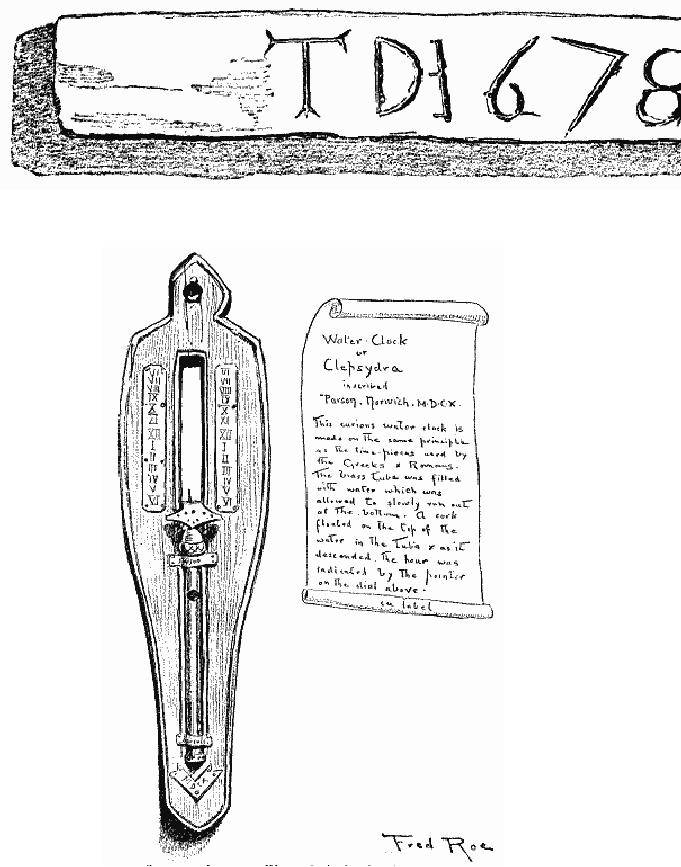 TD 1678
Water-Clock
or
Clepsydra
inscribed
"Parson, Norwich, M.D.C.X.
This curious water clock is
made on the same principle
as the time-pieces used by
the Greeks & Romans.
The brass tube was filled
with water which was
allowed to slowly run out
at the bottom. A cork
floated on the top of the
water in the tube & as it
descended, the hour was
indicated by the pointer
on the dial above.
label
VII VII
VIII VIII
IX IX
X X
XI XI
XII XII
I I
II II
III III
IIII IIII
V V
VI VI
Fred Roe